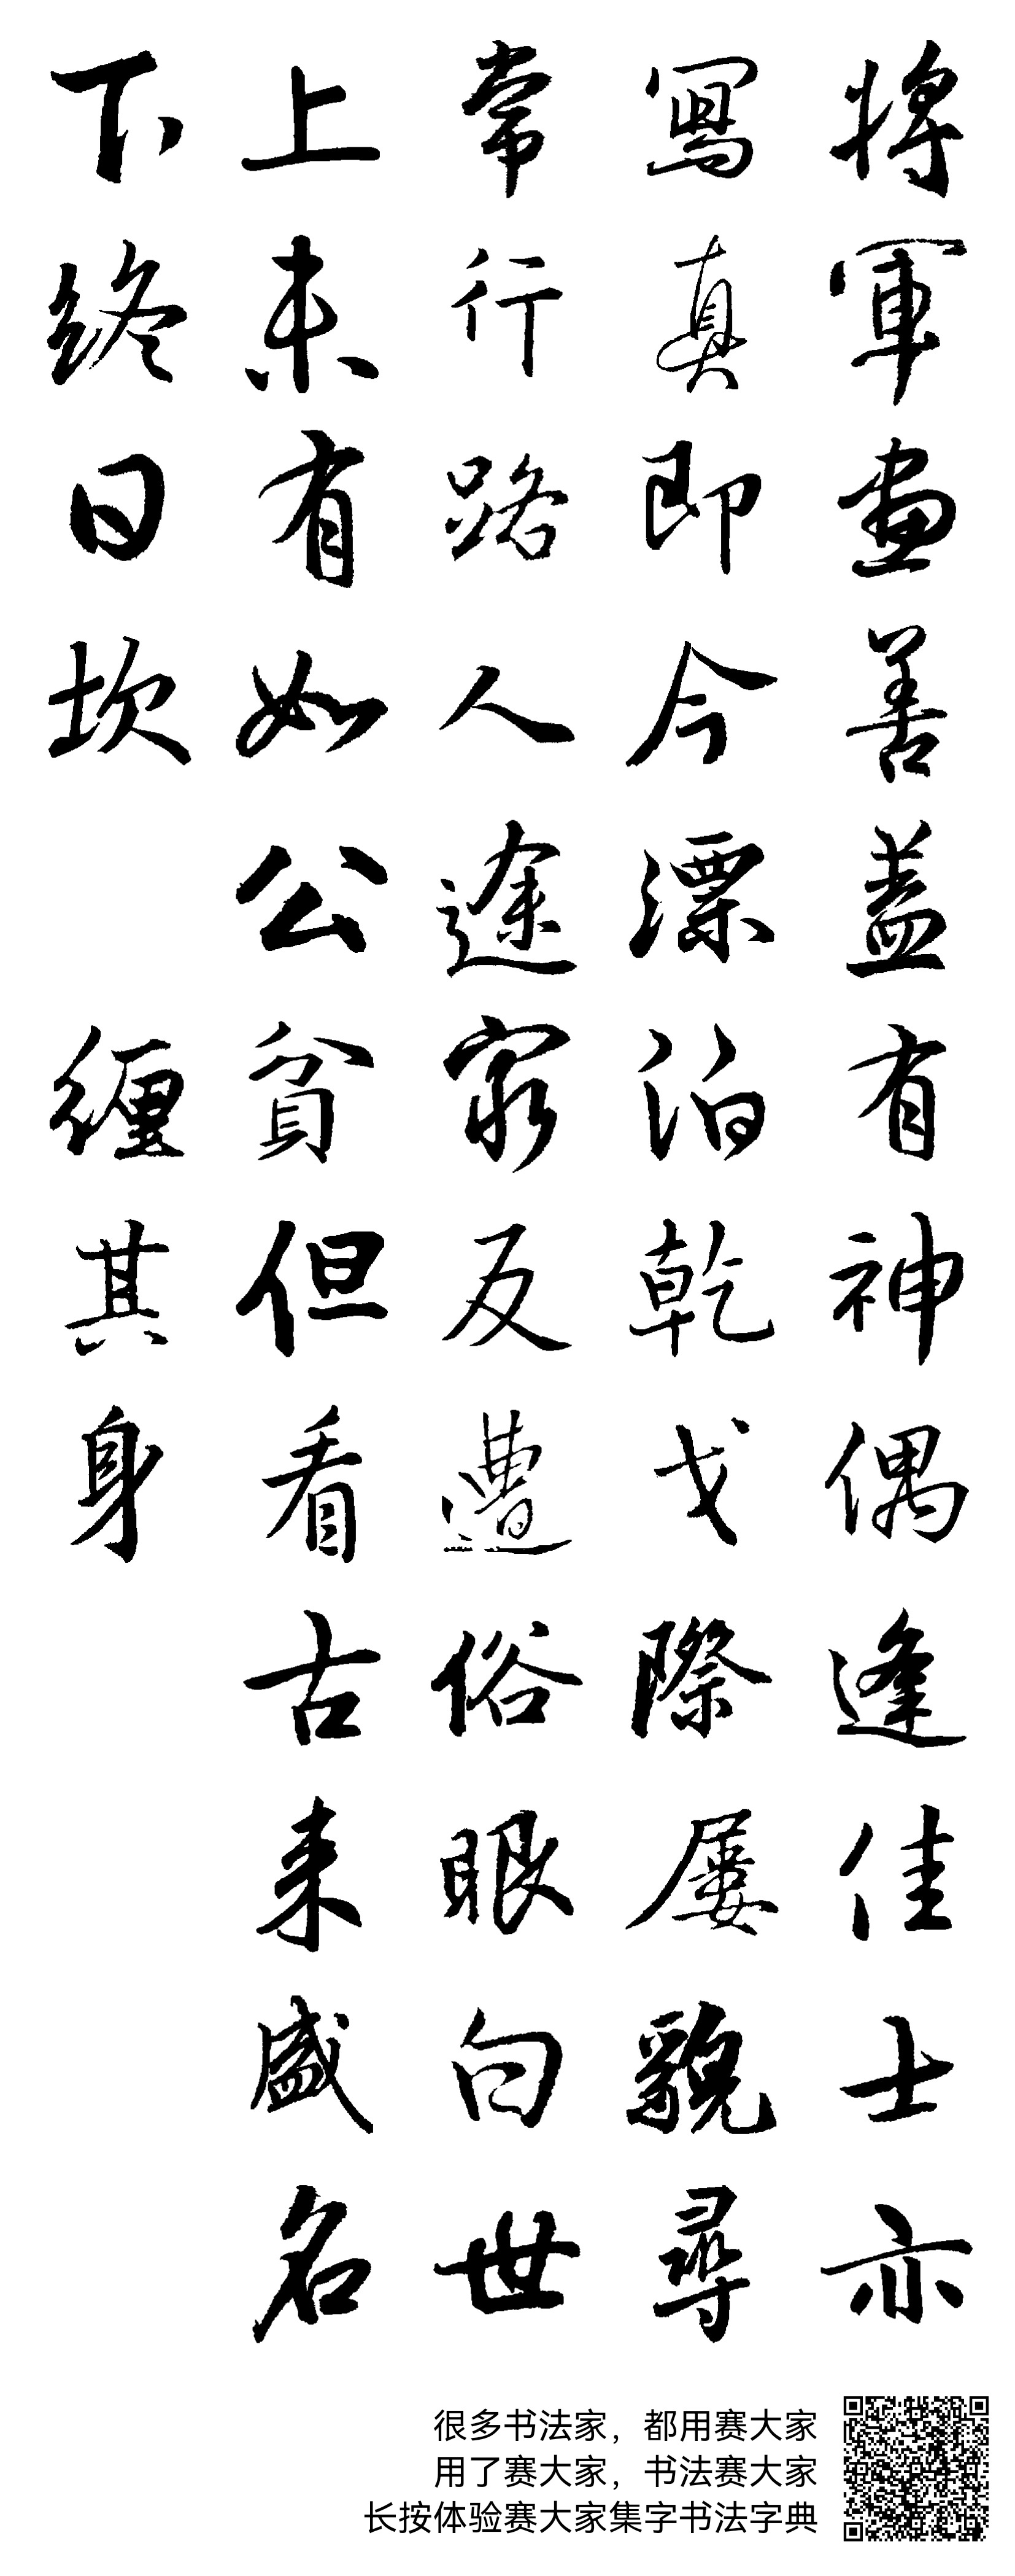 将軍畫善蓋有神偶逢佳士亦
寫真即今漂泊乾戈際屢貌尋
常行路人途窮反遭俗眼白世
上未有如公貧但看古来盛名
下终日坎纏其身
很多书法家，都用赛大家
用了赛大家，书法赛大家
长按体验赛大家集字书法字典